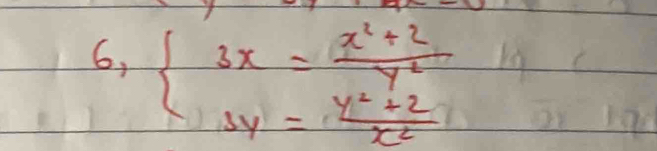 6, { 3x = (x² + 2)/y²
3y = (y² + 2)/x²